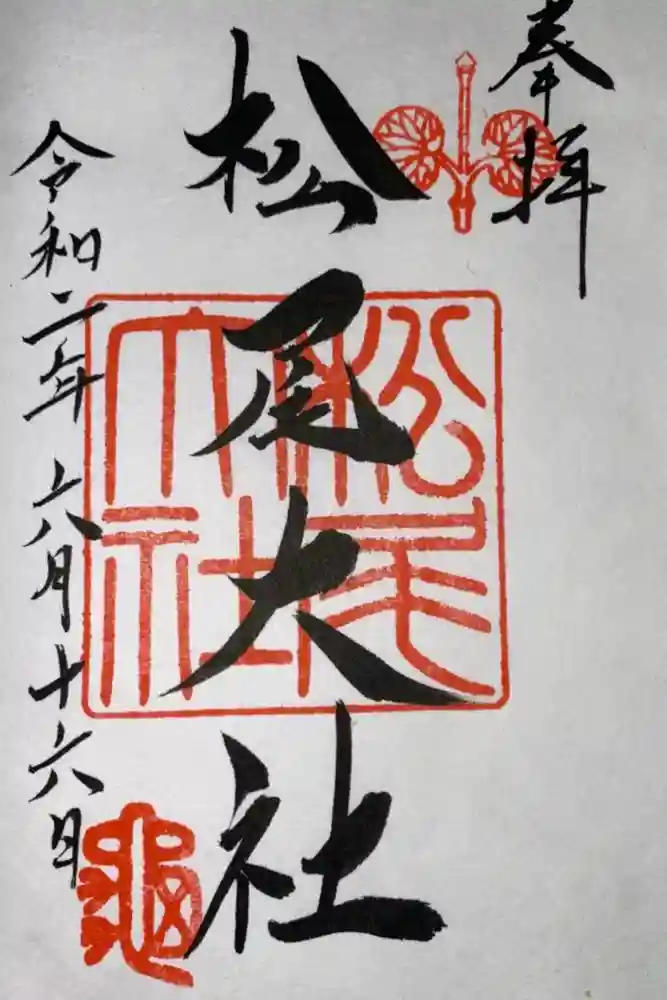 奉拝
松尾大社
松尾大社
令和二年六月十六日
亀